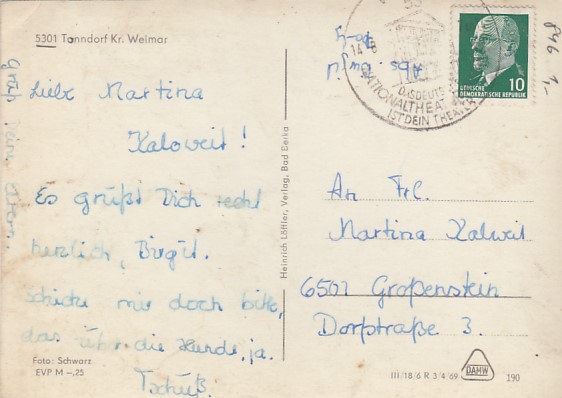 5301 Tonndorf Kr. Weimar
Liebe Martina
Kaloweit!
Es grüßt Dich recht
herzlich, Birgit.
Schicke mir doch bitte,
das die Hunde, ja.
Tschüß.
Grüß Deine Eltern.
Foto: Schwarz
EVP M –,25
Heinrich Löffler, Verlag, Bad Berka
Abs.
14-8
DAS DEUTSCHE
NATIONALTHEATER
IST DEIN THEATER
10
DEUTSCHE
DEMOKRATISCHE REPUBLIK
846 1,-
An Frl.
Martina Kalweit
6501 Großenstein
Dorfstraße 3.
III/18/6 R 3/4/69
DAMW
190